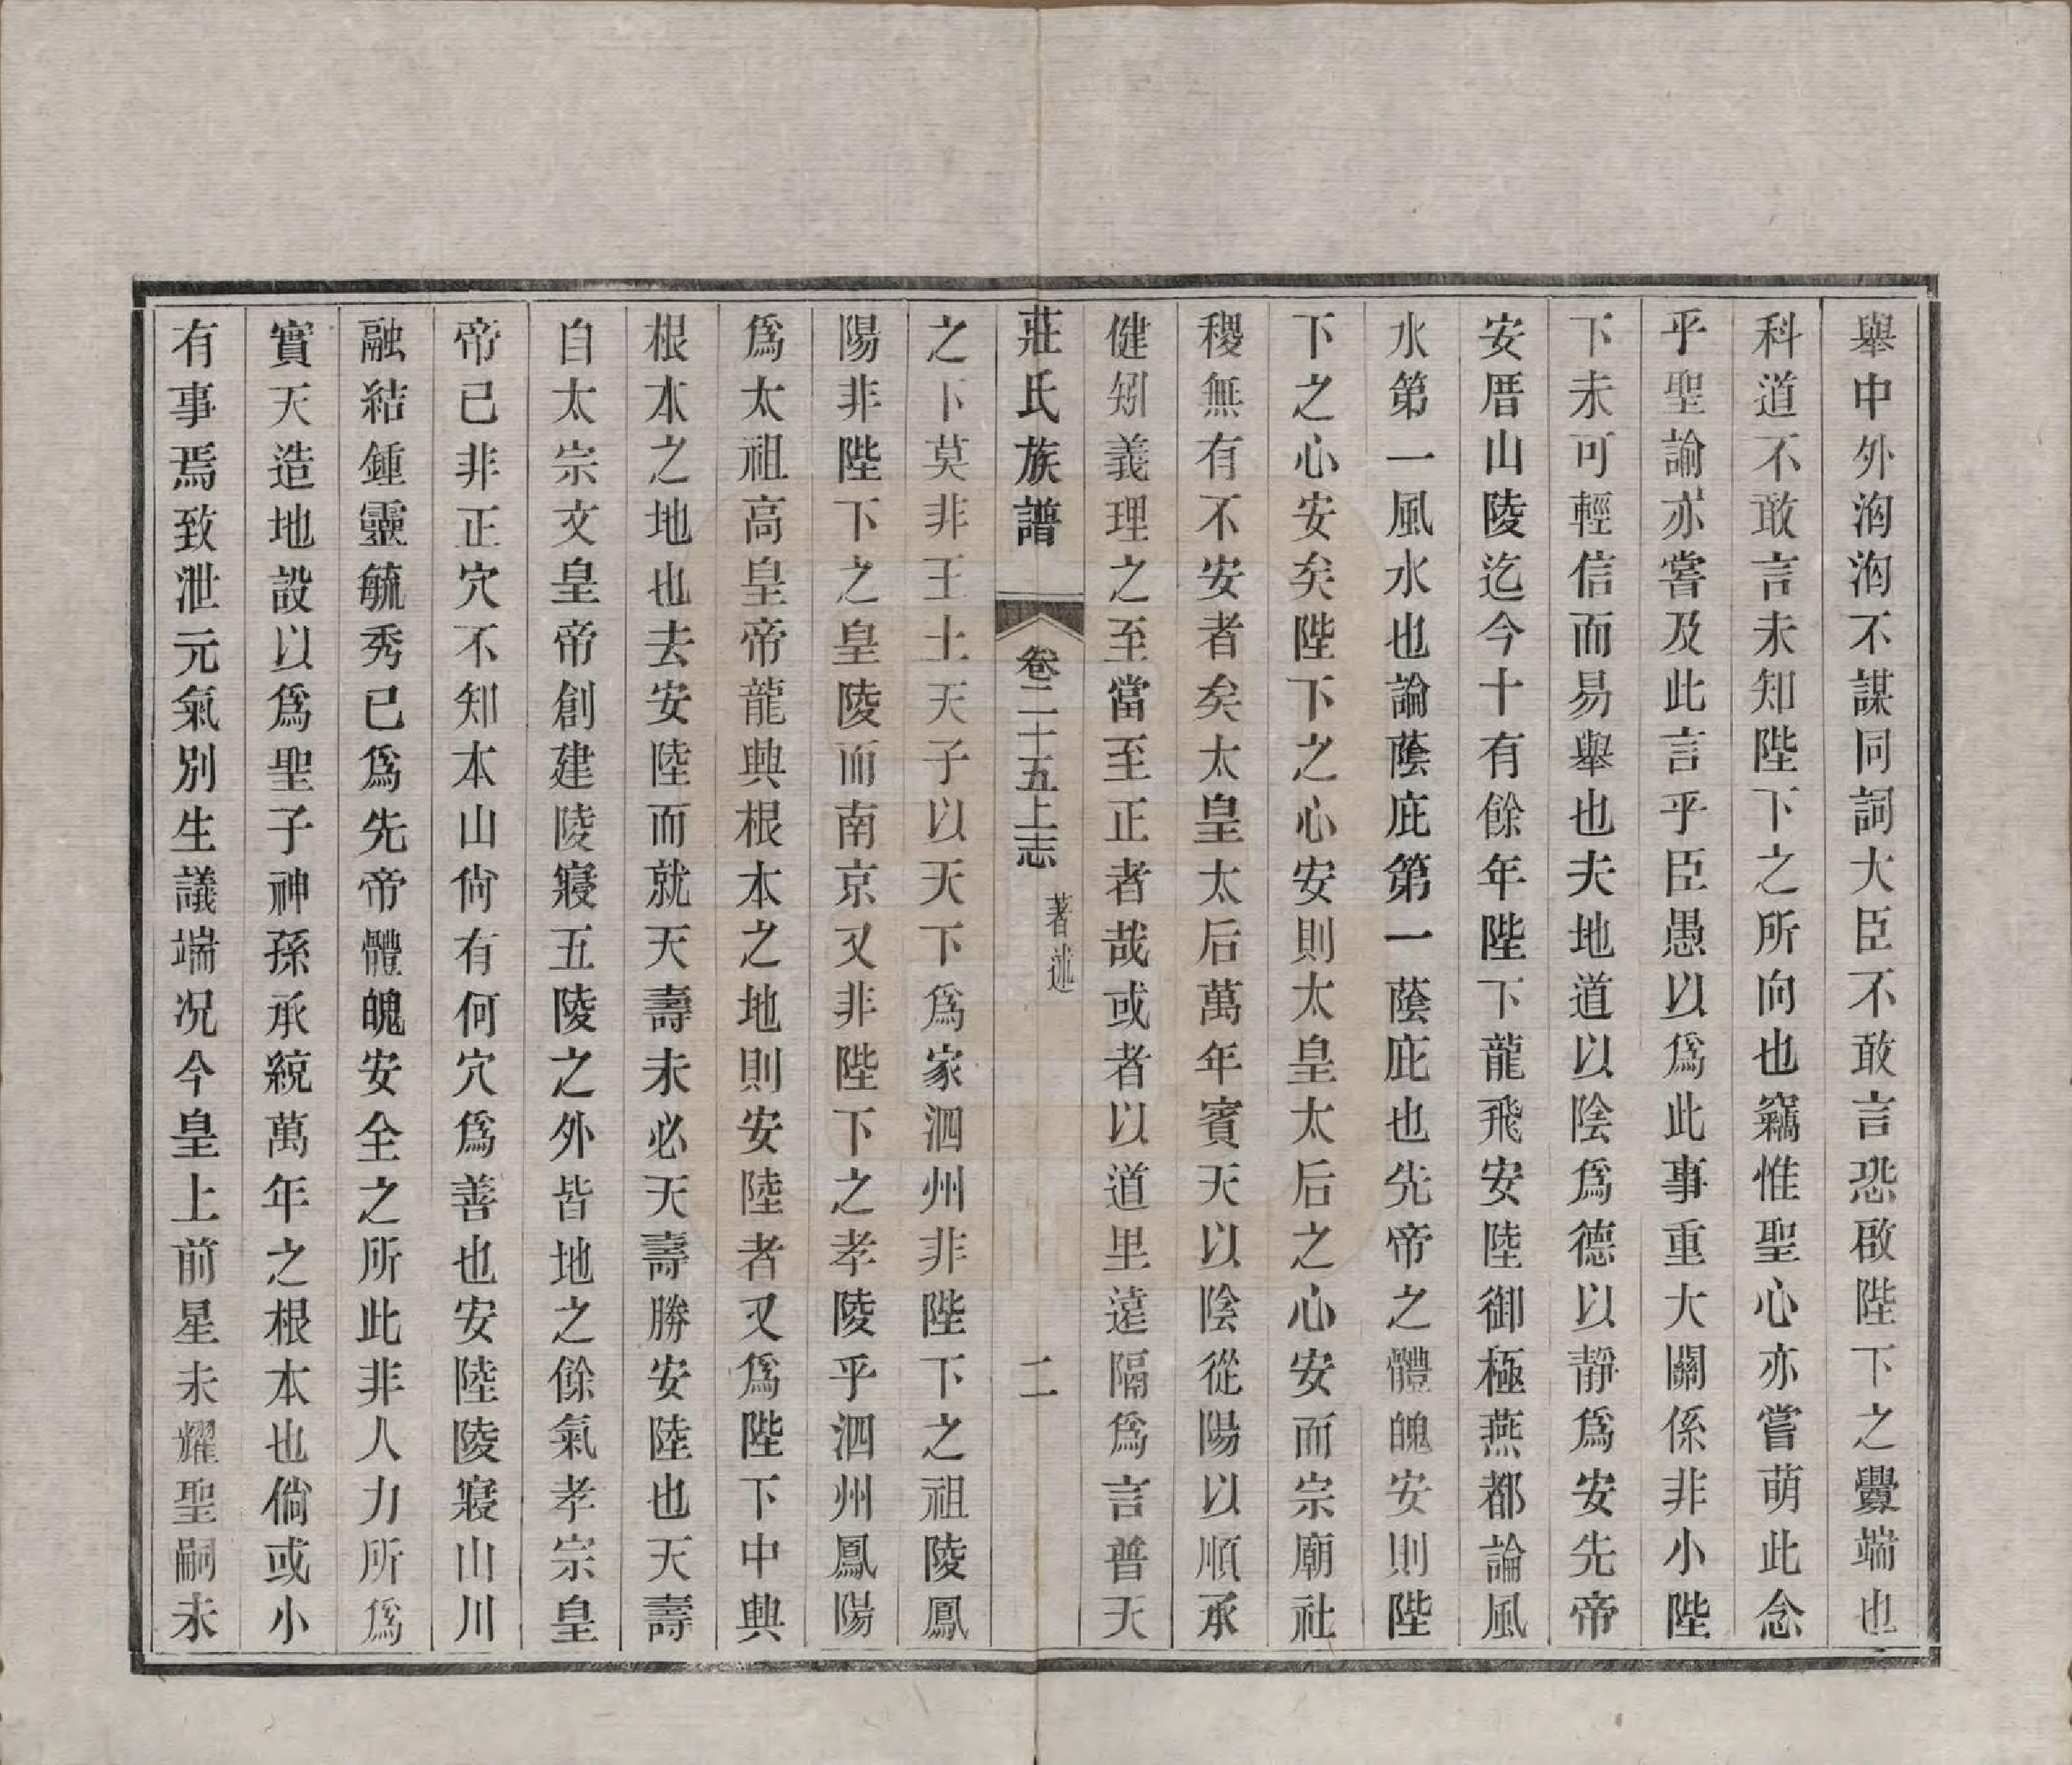 舉中外洶洶不謀同詞大臣不敢言恐啟陛下之釁端也
科道不敢言未知陛下之所向也竊惟聖心亦嘗萌此念
乎聖諭亦嘗及此言乎臣愚以爲此事重大關係非小陛
下未可輕信而易舉也夫地道以陰爲德以靜爲安先帝
安厝山陵迄今十有餘年陛下龍飛安陸御極燕都論風
水第一風水也論蔭庇第一蔭庇也先帝之體魄安則陛
下之心安矣陛下之心安則太皇太后之心安而宗廟社
稷無有不安者矣太皇太后萬年賓天以陰從陽以順承
健矧義理之至當至正者哉或者以道里遠隔爲言普天
莊氏族譜 卷二十五上志 著述 二
之下莫非王土天子以天下爲家泗州非陛下之祖陵鳳
陽非陛下之皇陵而南京又非陛下之孝陵乎泗州鳳陽
爲太祖高皇帝龍興根本之地則安陸者又爲陛下中興
根本之地也去安陸而就天壽未必天壽勝安陸也天壽
自太宗文皇帝創建陵寢五陵之外皆地之餘氣孝宗皇
帝已非正穴不知本山尙有何穴爲善也安陸陵寢山川
融結鍾靈毓秀已爲先帝體魄安全之所此非人力所爲
實天造地設以爲聖子神孫承統萬年之根本也倘或小
有事焉致泄元氣別生議端况今皇上前星未耀聖嗣未